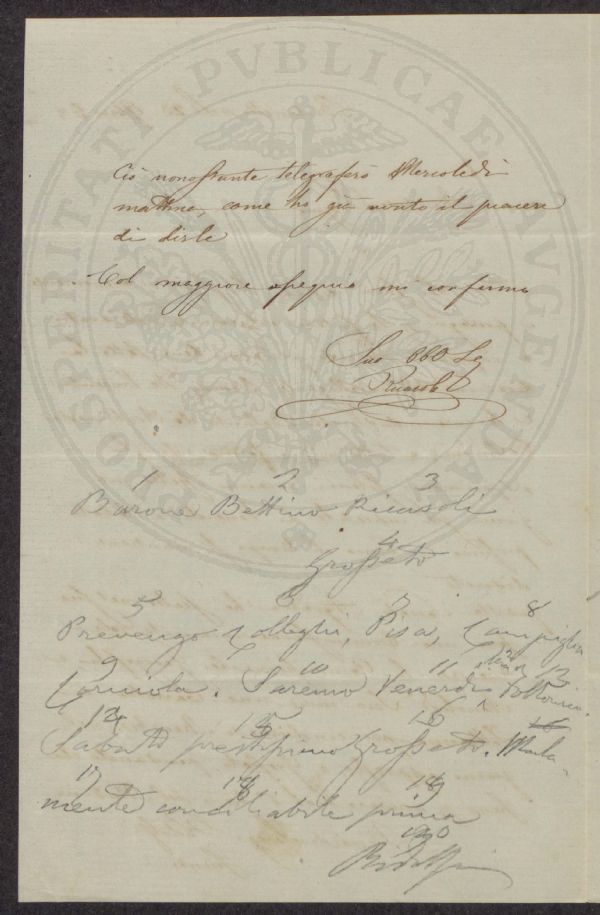 PROSPERITATI PVBLICAE AVGENDAE
Ciò nonostante telegraferò Mercoledì
mattina, come ho già avuto il piacere
di dirle
Col maggiore ossequio mi confermo
Suo
Ricasoli
1 2 3
Barone Bettino Ricasoli
4
Grosseto
5 6 7 8
Prevengo Colleghi, Pisa, Campiglia
9 10 11 12 13
Cornicola. Saremo Venerdì Follonica.
14 15 16
Sabato prestissimo Grosseto.
17 18 19
mente conciliabile prima
20
Ridolfi